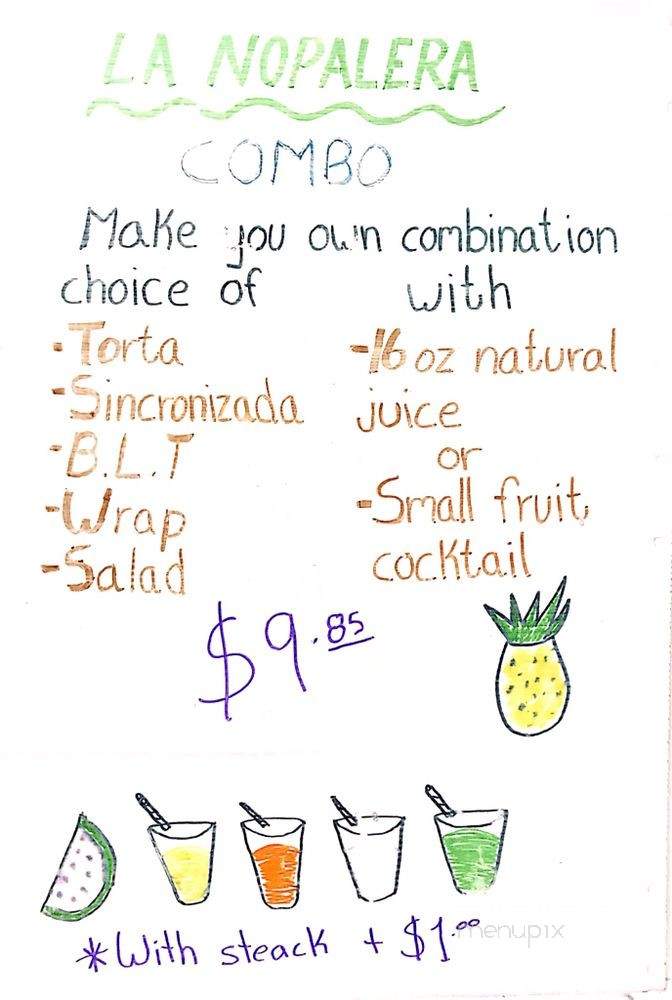 LA NOPALERA
COMBO
Make you own combination
choice of
with
-Torta
-Sincronizada
-B.L.T
-Wrap
-Salad
-16 oz natural
juice
or
-Small fruit
cocktail
$9.85
*With steack + $1.00
menupix